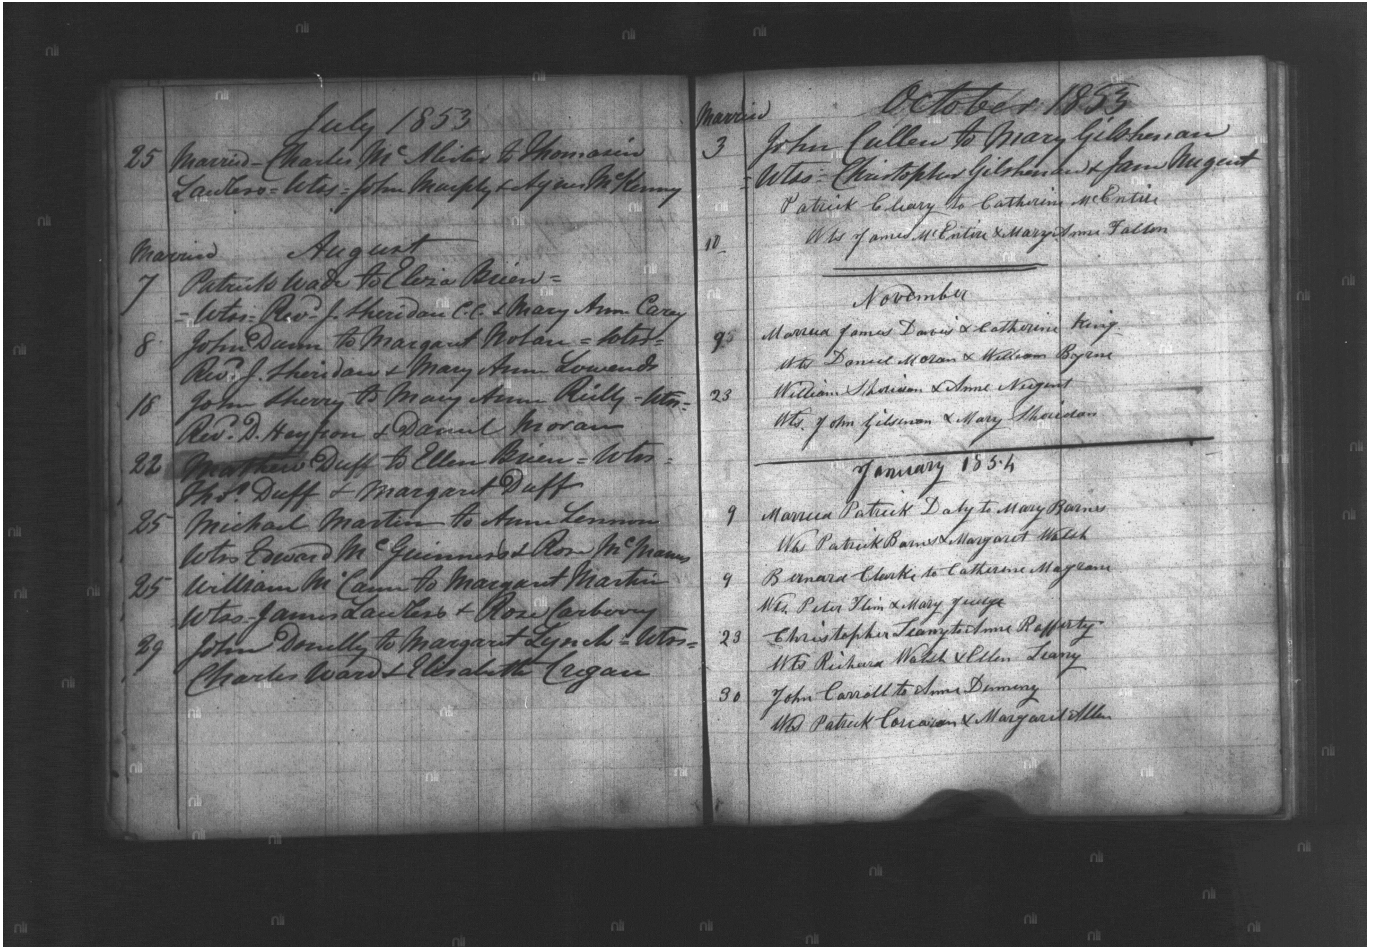 July 1853
25 Married - Charles McAlister to Thomasin
Lawless = Wtss = John Murphy & Agnes McKenny
Married August
7 Patrick Wade to Eliza Brien =
= Wtss = Revd J. Sheridan C.C. & Mary Ann Carey
8 John Dunn to Margaret Nolan = Wtss =
Revd J. Sheridan & Mary Ann
16 John Sherry to Mary Anne Reilly - Wtss =
Revd D. & Daniel Moran
22 Mathew Duff to Ellen Brien = Wtss =
Thos Duff & Margaret Duff
25 Michael Martin to Anne Lennon
Wtss Edward McGuinness & Rose McManus
25 William McCann to Margaret Martin
Wtss - James Lawless & Rose Carberry
29 John Donelly to Margaret Lynch = Wtss =
Charles Ward & Elisabeth Crogan
October 1853
Married
3 John Cullen to Mary Gilshenan
= Wtss = Christopher Gilshenan & Jane Nugent
Patrick Cleary to Catherine McEntire
10 Wts James McEntire & Mary Anne Fallon
November
Married James Davis & Catherine King
Wts Daniel Moran & William Byrne
23 William Sheridan & Anne Nugent
Wts. John Gilsenan & Mary Sheridan
January 1854
9 Married Patrick Daly to Mary Barnes
Wts Patrick Barnes & Margaret Walsh
9 Bernard Clarke to Catherine Magrane
Wts. Peter Flinn & Mary Judge
23 Christopher Leany to Anne Rafferty
Wts Richard Walsh & Ellen Leany
30 John Carroll to Anne
Wts Patrick Corcoran & Margaret Allen